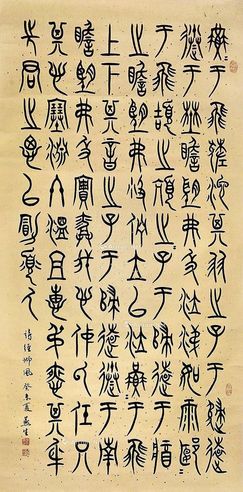 燕于飛差池其羽之子于歸遠
送于野瞻望弗及泣涕如雨燕
于飛頡之頏之子于歸遠于將
之瞻望弗及佇立以泣燕于飛
上下其音之子于歸遠送于南
瞻望弗及實勞我心仲氏任只
其心塞淵終溫且惠淑慎其身
先君之思以勖寡人
詩經邶風 癸未夏